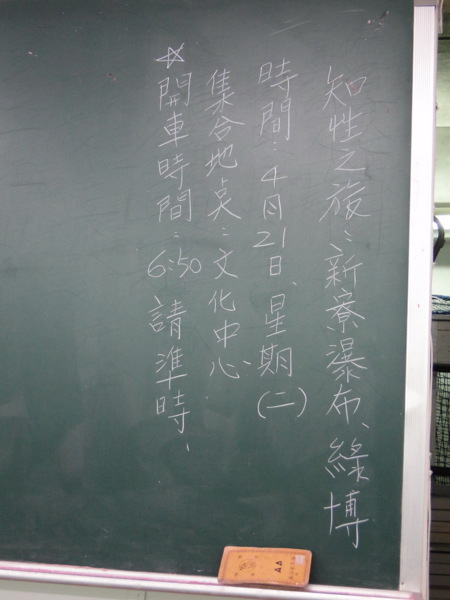 知性之旅：新寮瀑布、綠博
時間：4月21日、星期(二)
集合地点：文化中心、
☆開車時間：6:50 請準時、